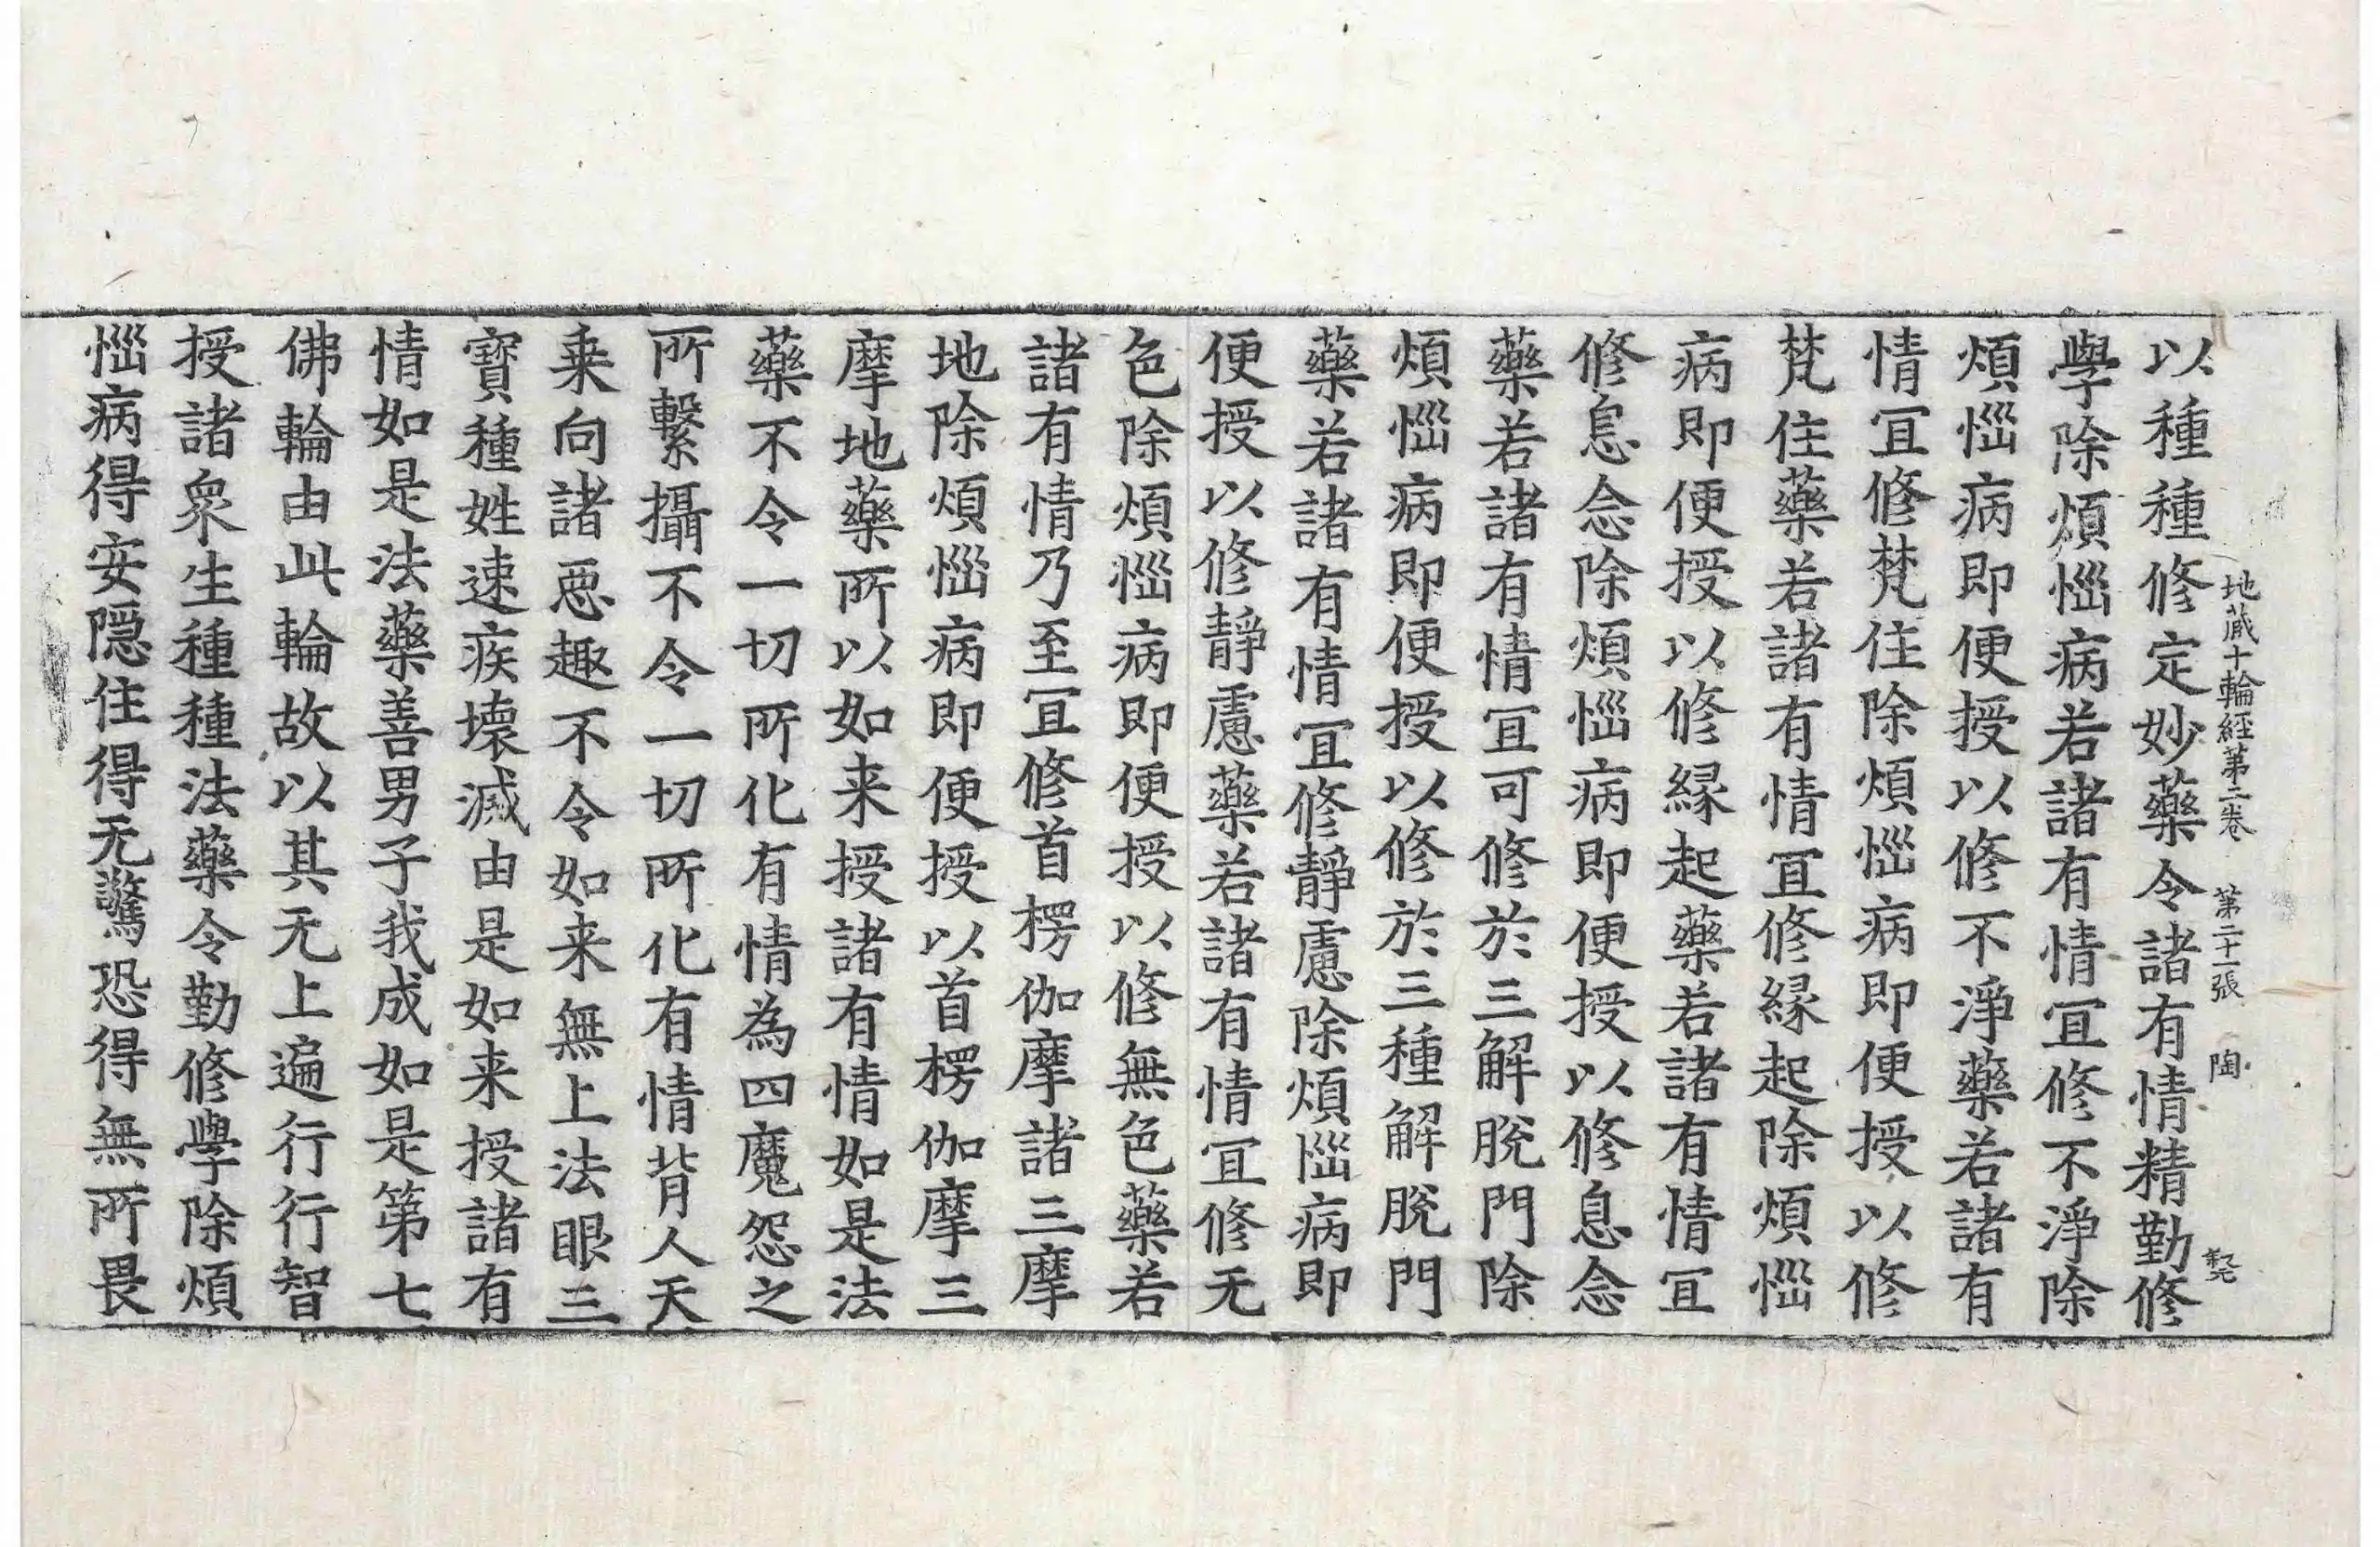 以種種修定妙藥令諸有情精勤修
地蔵十輪經第二卷 第二十一張 陶
學除煩惱病若諸有情宜修不淨除
煩惱病即便授以修不淨藥若諸有
情宜修梵住除煩惱病即便授以修
梵住藥若諸有情宜修縁起除煩惱
病即便授以修縁起藥若諸有情宜
修息念除煩惱病即便授以修息念
藥若諸有情宜可修於三解脫門除
煩惱病即便授以修於三種解脫門
藥若諸有情宜修靜慮除煩惱病即
便授以修靜慮藥若諸有情宜修无
色除煩惱病即便授以修無色藥若
諸有情乃至宜修首楞伽摩諸三摩
地除煩惱病即便授以首楞伽摩三
摩地藥所以如来授諸有情如是法
藥不令一切所化有情為四魔怨之
所繫攝不令一切所化有情背人天
乗向諸惡趣不令如来無上法眼三
寶種姓速疾壞滅由是如来授諸有
情如是法藥善男子我成如是第七
佛輪由此輪故以其无上遍行行智
授諸衆生種種法藥令勤修學除煩
惱病得安隠住得无驚恐得無所畏